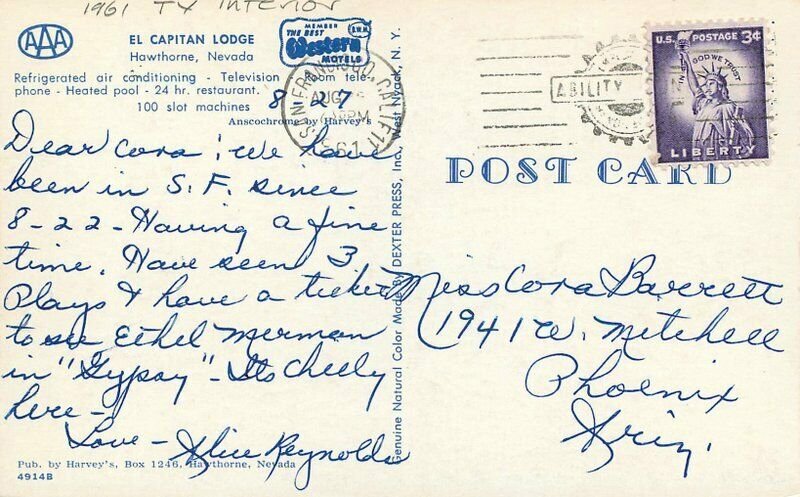 1961 TX INTERIOR
AAA
EL CAPITAN LODGE
Hawthorne, Nevada
MEMBER
THE BEST
Western
MOTELS
B.W.M.
Refrigerated air conditioning - Television - Room tele-
phone - Heated pool - 24 hr. restaurant.
100 slot machines
Anscochrome by Harvey's
8-27
SAN FRANCISCO, CALIF.
AUG
PM
1961
ABILITY
U.S. POSTAGE 3¢
IN GOD WE TRUST
LIBERTY
POST CARD
Dear Cora: We have
been in S.F. since
8-22- Having a fine
time. Have seen 3
Plays & have a ticket
to see Ethel Merman
in "Gypsy" - Its cheely
here -
Love - Alice Reynolds
Miss Cora Barrett
1941 W. Mitchell
Phoenix
Ariz.
Genuine Natural Color Made by DEXTER PRESS, Inc., West Nyack, N. Y.
Pub. by Harvey's, Box 1246, Hawthorne, Nevada
4914B